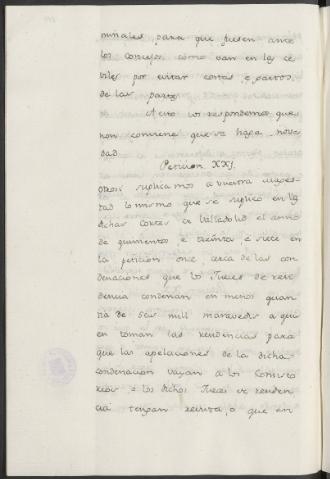 minales para que fuesen ante
los concejos como van en las ce
viles por evitar costas e gastos
de las partes
A esto vos respondemos que
non conviene que se haga nove
dad.
Peticion XXI.
Otrosi suplicamos a vuestra mages
tad lo mismo que se suplicó en las
dichas cortes en Valladolid el anno
de quinientos e treinta e siete en
la peticion once cerca de las con
denaciones que los Jueces de resi
dencia condenan en menos quan
tia de seis mill maravedis a qui
en toman las residencias para
que las apelaciones de la dicha
condenacion vayan a los
e los dichos Jueces de residen
cia tengan , o que en